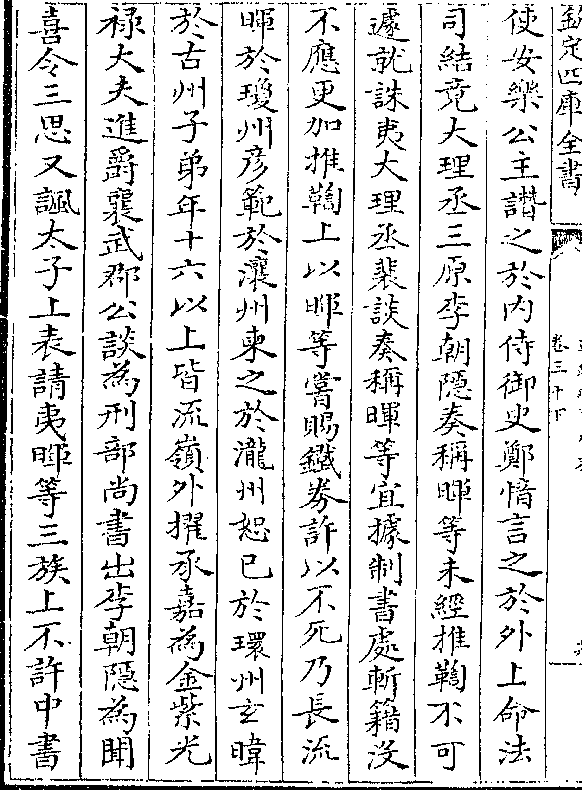 欽定四庫全書
使安樂公主譖之於内侍御史鄭愔言之於外上命法
司結竟大理丞三原李朝隱奏稱暉等未經推鞫不可
遽就誅夷大理丞裴談奏稱暉等宜據制書處斬籍没
不應更加推鞫上以暉等嘗賜鐵劵許以不死乃長流
暉於瓊州彦範於瀼州柬之於瀧州恕已於環州玄暐
於古州子弟年十六以上皆流嶺外擢承嘉為金紫光
禄大夫進爵襄武郡公談為刑部尚書出李朝隱為聞
喜令三思又諷太子上表請夷暉等三族上不許中書